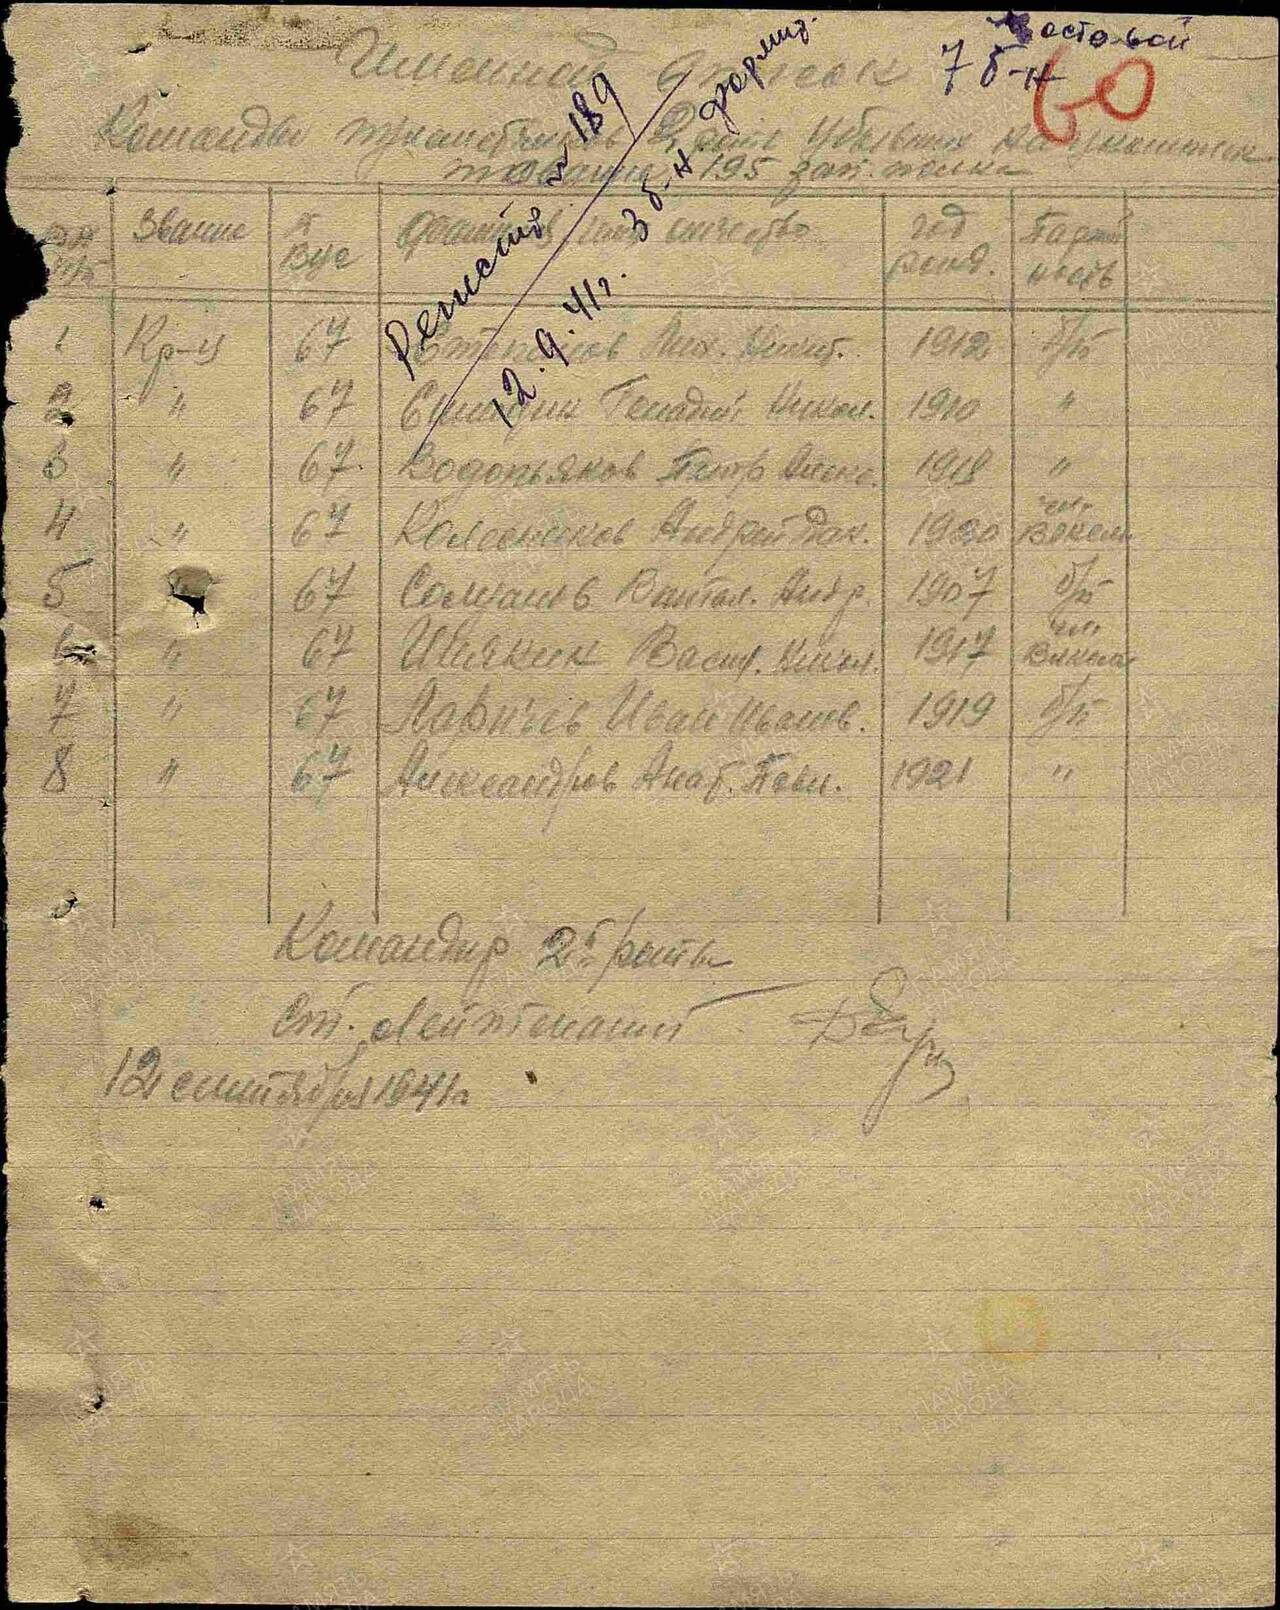 Мостовой
7 б-н
60
Именной список
Команды 2 роты убывших на укомплек
тование 195 зап. полка
Регистр. № 189
12.9.41г. 3 б-н формир.
№№ п/п Звание № Вус Фамилия имя отчество год рожд. Партий ность
1 Кр-ц 67 Степанов Мих. Никит. 1912 б/п
2 " 67 Геннадий Никол. 1910 "
3 " 67 Водопьяков Петр Алекс. 1918 "
4 " 67 Колесников Андрей 1920 чл. Влксм
5 " 67 Андр. 1907 б/п
6 " 67 Шиякин Васил. Никол. 1917 чл. Влксм
7 " 67 Ларичев Иван Иванов. 1919 б/п
8 " 67 Александров Анат. Павл. 1921 "
Командир 2й роты
Ст. лейтенант
12 сентября 1941г